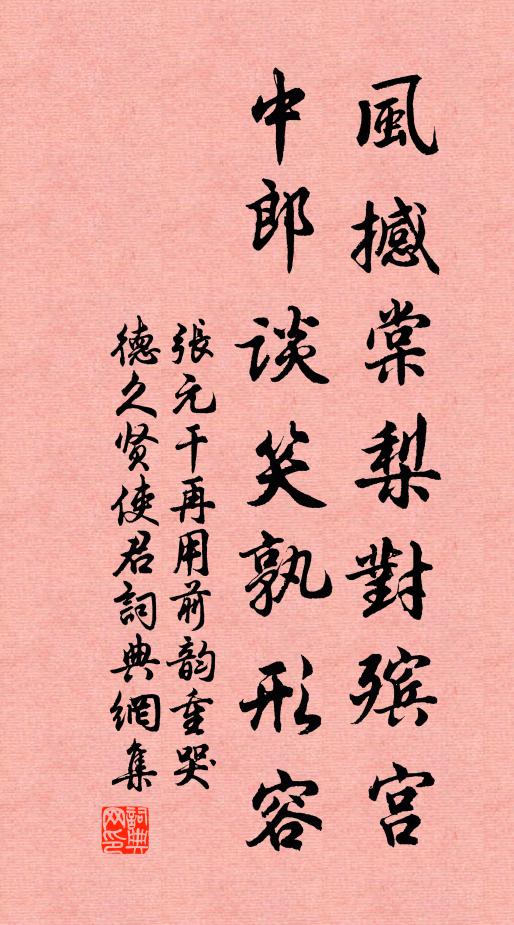 風撼棠梨對殯宫
中郎谈笑孰形容
張元干再用前韵重哭
德久贤使君詞典網集
詞典网印